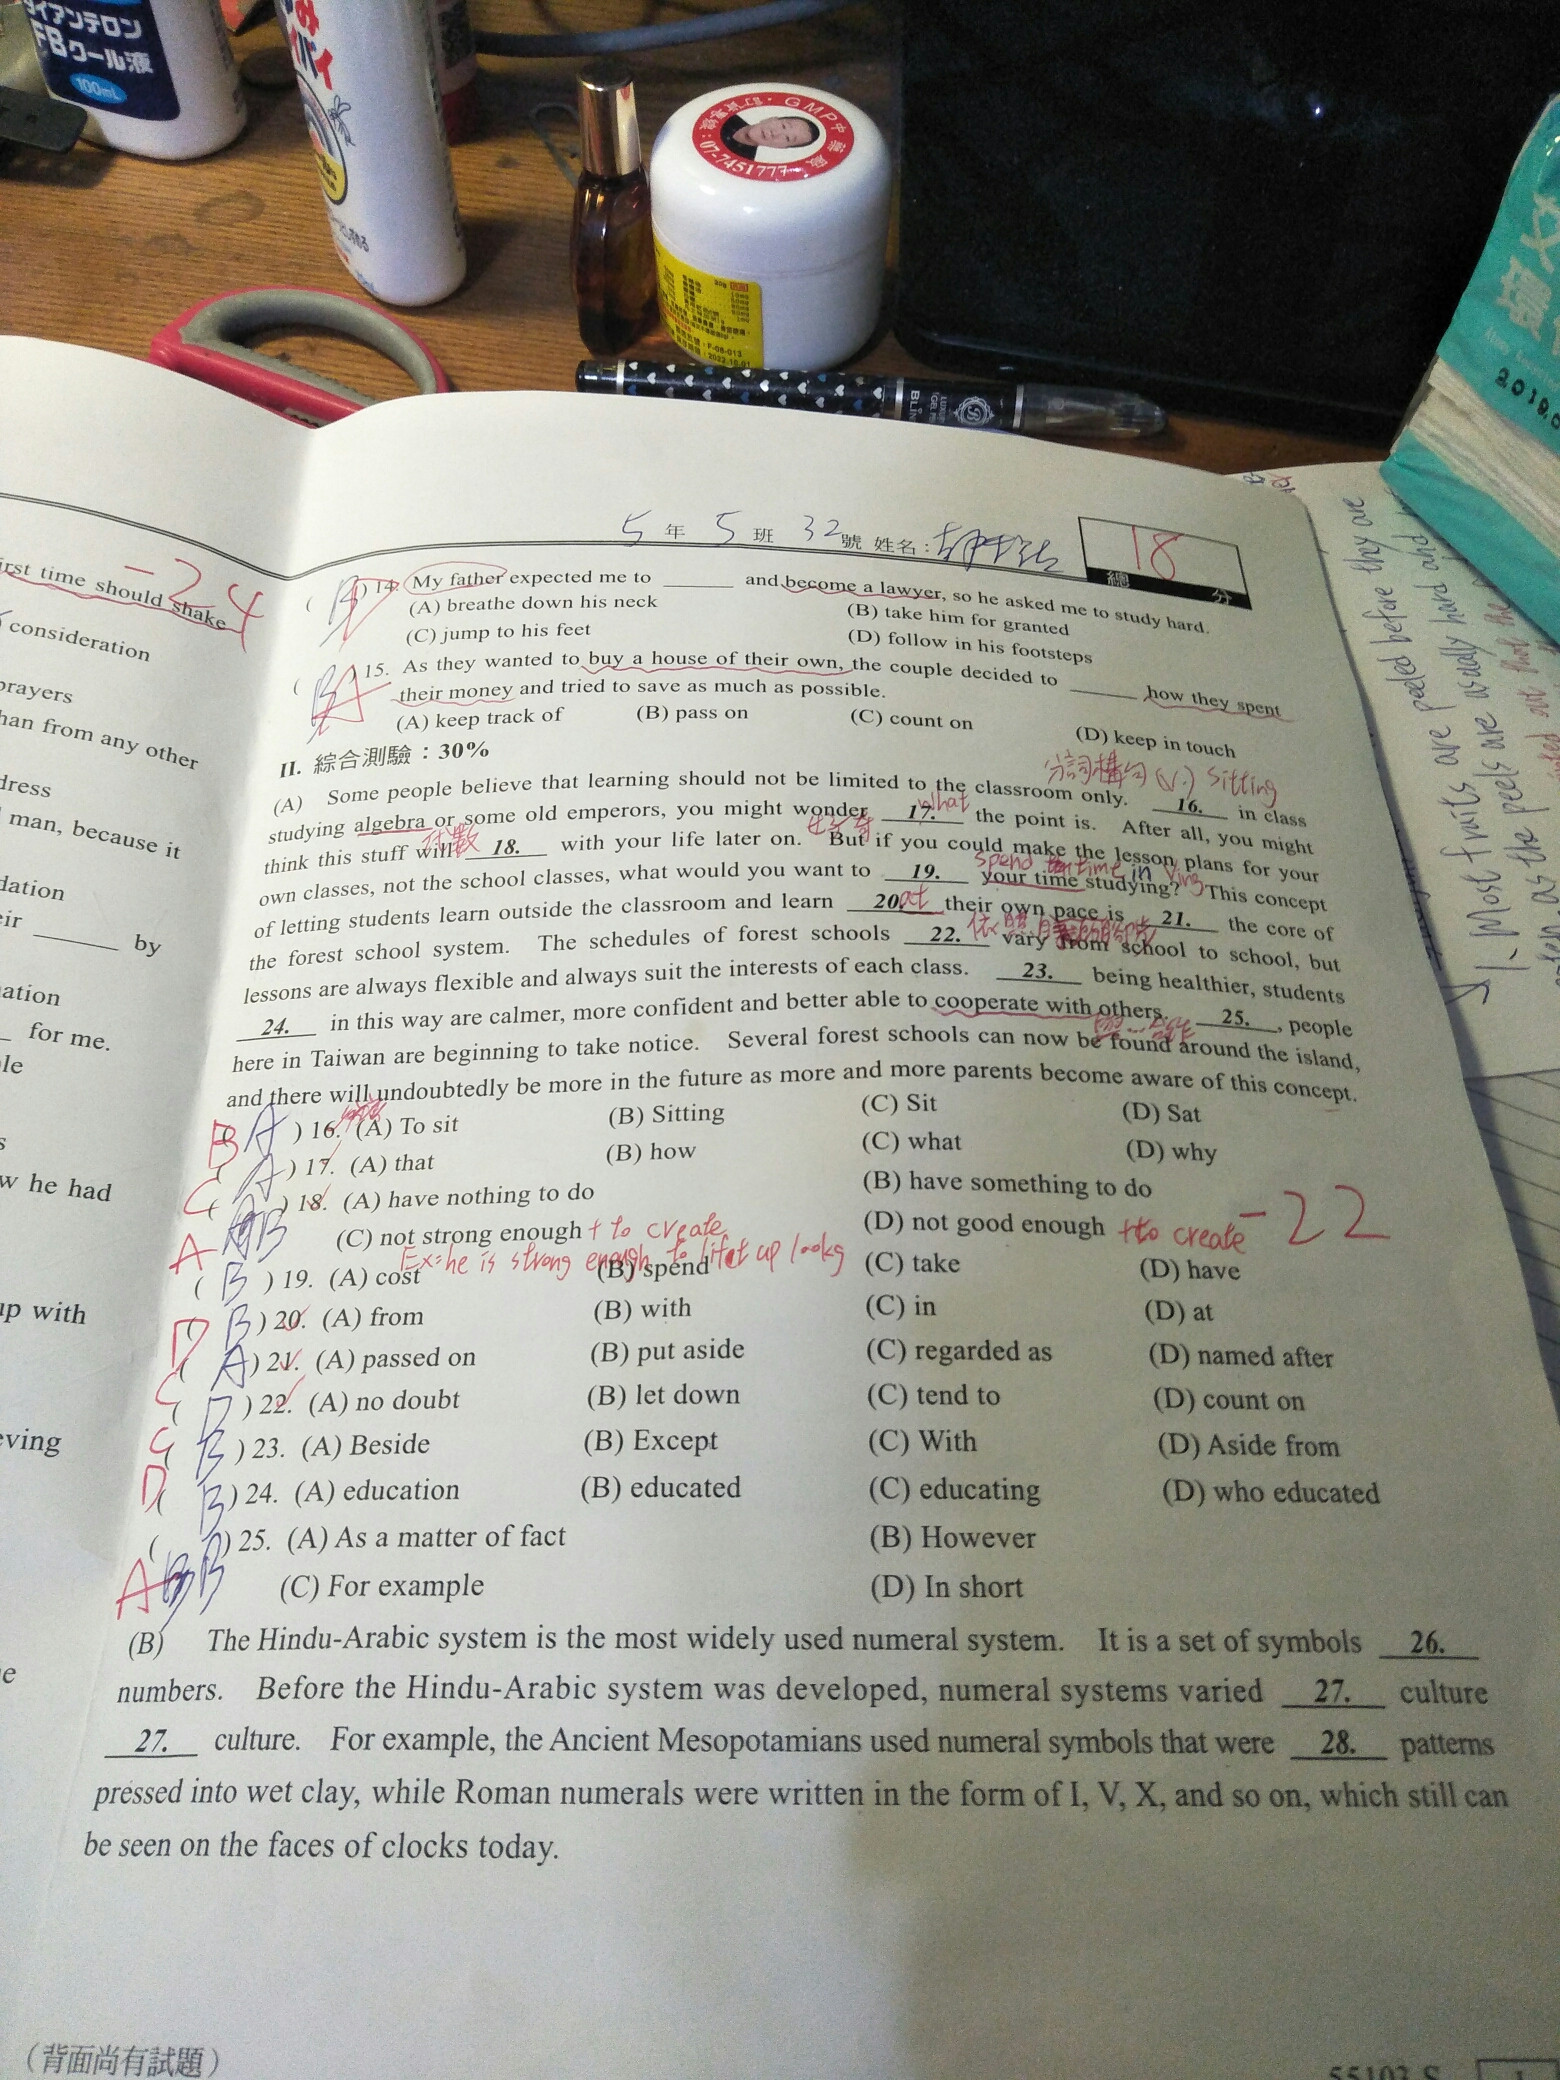 イアンテロン
FBクール液
100mL
GMP中
07-7451777
2022.10.01
BLIN
2019.0
5年 5班 32號 姓名：
18
總分
irst time should shake
-24
consideration
prayers
han from any other
dress
man, because it
dation
eir ______ by
ation
for me.
le
s
w he had
up with
eving
e
( ) 14. My father expected me to ______ and become a lawyer, so he asked me to study hard.
(A) breathe down his neck (B) take him for granted
(C) jump to his feet (D) follow in his footsteps
( A ) 15. As they wanted to buy a house of their own, the couple decided to ______ how they spent
their money and tried to save as much as possible.
(A) keep track of (B) pass on (C) count on (D) keep in touch
II. 綜合測驗：30%
分詞構句 (V.) Sitting
(A) Some people believe that learning should not be limited to the classroom only. 16. in class
studying algebra or some old emperors, you might wonder 17. the point is. After all, you might
what
代數
think this stuff will 18. with your life later on. But if you could make the lesson plans for your
spend time in Ving
own classes, not the school classes, what would you want to 19. your time studying? This concept
of letting students learn outside the classroom and learn 20. their own pace is 21. the core of
at
the forest school system. The schedules of forest schools 22. vary from school to school, but
lessons are always flexible and always suit the interests of each class. 23. being healthier, students
24. in this way are calmer, more confident and better able to cooperate with others. 25. , people
here in Taiwan are beginning to take notice. Several forest schools can now be found around the island,
and there will undoubtedly be more in the future as more and more parents become aware of this concept.
B ( A ) 16. (A) To sit (B) Sitting (C) Sit (D) Sat
C ( A ) 17. (A) that (B) how (C) what (D) why
A ( B ) 18. (A) have nothing to do (B) have something to do
(C) not strong enough + to create (D) not good enough + to create
-22
Ex: he is strong enough to lift up
( B ) 19. (A) cost (B) spend (C) take (D) have
D ( B ) 20. (A) from (B) with (C) in (D) at
C ( A ) 21. (A) passed on (B) put aside (C) regarded as (D) named after
C ( D ) 22. (A) no doubt (B) let down (C) tend to (D) count on
D ( B ) 23. (A) Beside (B) Except (C) With (D) Aside from
( B ) 24. (A) education (B) educated (C) educating (D) who educated
A ( B ) 25. (A) As a matter of fact (B) However
(C) For example (D) In short
(B) The Hindu-Arabic system is the most widely used numeral system. It is a set of symbols 26.
numbers. Before the Hindu-Arabic system was developed, numeral systems varied 27. culture
27. culture. For example, the Ancient Mesopotamians used numeral symbols that were 28. patterns
pressed into wet clay, while Roman numerals were written in the form of I, V, X, and so on, which still can
be seen on the faces of clocks today.
（背面尚有試題）
55103-S
1. Most fruits are peeled before they are
as the peels are usually hard and